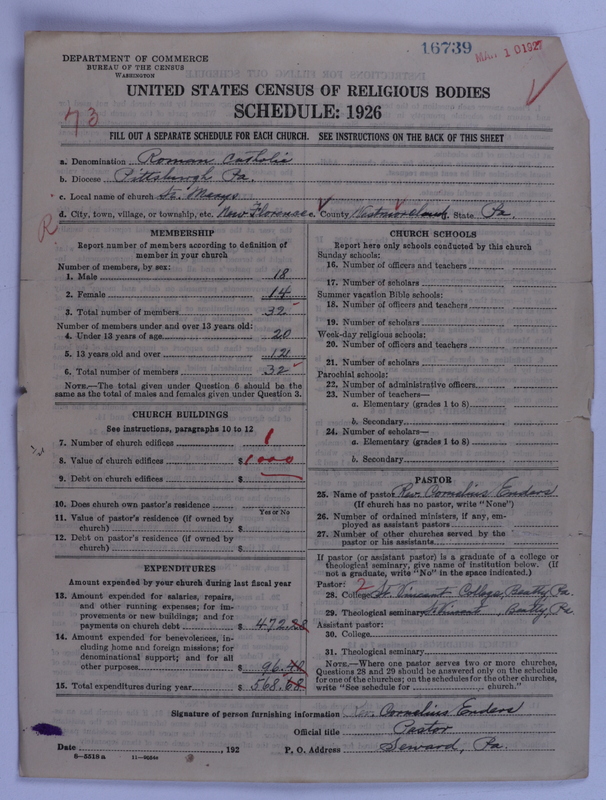 16739 MAR 10 1927
DEPARTMENT OF COMMERCE
BUREAU OF THE CENSUS
WASHINGTON
UNITED STATES CENSUS OF RELIGIOUS BODIES
SCHEDULE: 1926
73
FILL OUT A SEPARATE SCHEDULE FOR EACH CHURCH. SEE INSTRUCTIONS ON THE BACK OF THIS SHEET
a. Denomination Roman Catholic
b. Diocese Pittsburgh Pa.
c. Local name of church St. Marys
d. City, town, village, or township, etc. New Florence e. County Westmoreland State Pa.
R
MEMBERSHIP
Report number of members according to definition of
member in your church
Number of members, by sex:
1. Male 18
2. Female 14
3. Total number of members 32
Number of members under and over 13 years old:
4. Under 13 years of age 20
5. 13 years old and over 12
6. Total number of members 32
NOTE.—The total given under Question 6 should be the
same as the total of males and females given under Question 3.
CHURCH BUILDINGS
See instructions, paragraphs 10 to 12
7. Number of church edifices 1
8. Value of church edifices $1000
9. Debt on church edifices $
10. Does church own pastor's residence
Yes or No
11. Value of pastor's residence (if owned by
church) $
12. Debt on pastor's residence (if owned by
church) $
EXPENDITURES
Amount expended by your church during last fiscal year
13. Amount expended for salaries, repairs,
and other running expenses; for im-
provements or new buildings; and for
payments on church debt $ 472.28
14. Amount expended for benevolences, in-
cluding home and foreign missions; for
denominational support; and for all
other purposes $ 96.40
15. Total expenditures during year $ 568.68
CHURCH SCHOOLS
Report here only schools conducted by this church
Sunday schools:
16. Number of officers and teachers
17. Number of scholars
Summer vacation Bible schools:
18. Number of officers and teachers
19. Number of scholars
Week-day religious schools:
20. Number of officers and teachers
21. Number of scholars
Parochial schools:
22. Number of administrative officers
23. Number of teachers—
a. Elementary (grades 1 to 8)
b. Secondary
24. Number of scholars—
a. Elementary (grades 1 to 8)
b. Secondary
PASTOR
25. Name of pastor Rev. Cornelius Enders
(If church has no pastor, write "None")
26. Number of ordained ministers, if any, em-
ployed as assistant pastors
27. Number of other churches served by the
pastor or his assistants
If pastor (or assistant pastor) is a graduate of a college or
theological seminary, give name of institution below. (If
not a graduate, write "No" in the space indicated.)
Pastor: 2
28. College St. Vincent College, Beatty, Pa.
29. Theological seminary St. Vincent, Beatty, Pa
Assistant pastor:
30. College
31. Theological seminary
NOTE.—Where one pastor serves two or more churches,
Questions 28 and 29 should be answered only on the schedule
for one of the churches; on the schedules for the other churches,
write "See schedule for church."
Signature of person furnishing information Rev. Cornelius Enders
Official title Pastor
Date , 192 P. O. Address Seward, Pa
8—5518 a